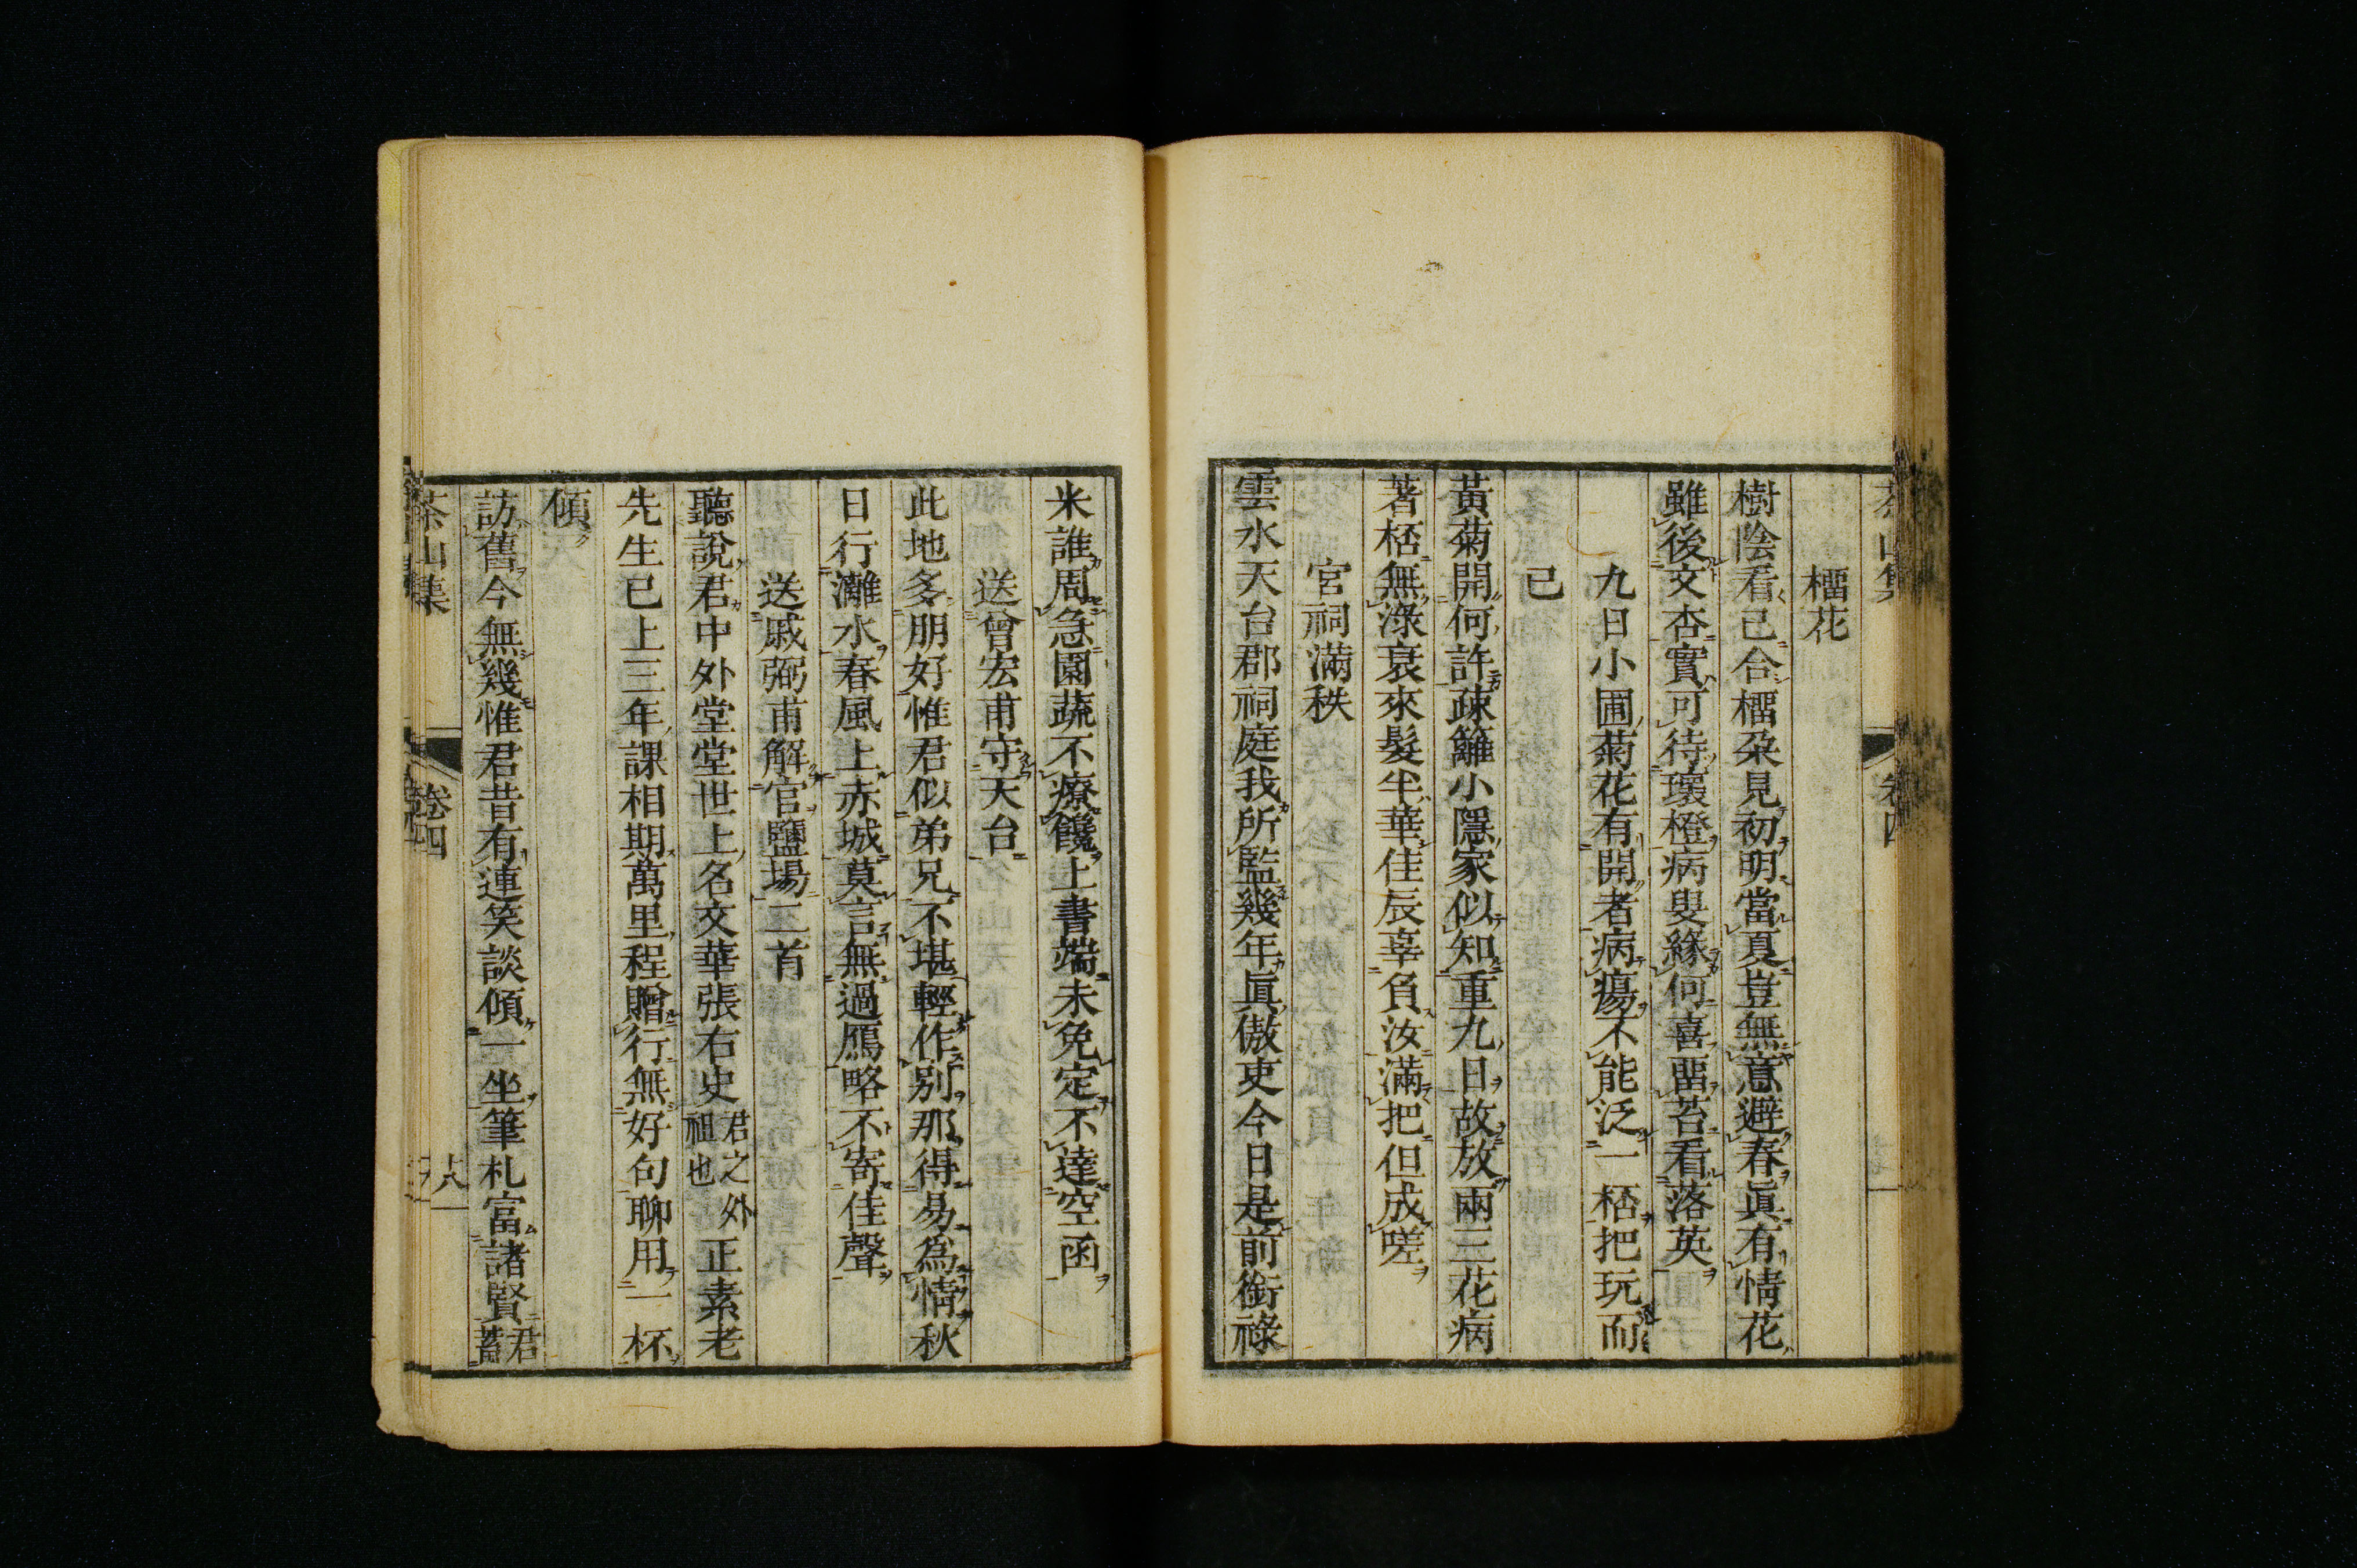 榴花
樹陰看已合榴朶見初明當夏豈無意避春眞有情花
雖後文杏實可待壞橙病叟緣何喜畱苔看落英
九日小圃菊花有開者病瘍不能泛一桮把玩而
已
黃菊開何許疎籬小隱家似知重九日故放兩三花病
著桮無淥衰來髮半華佳辰辜負汝滿把但成嗟
宮祠滿秩
雲水天台郡祠庭我所監幾年眞傲吏今日是前銜祿
米誰周急園蔬不療饞上書端未免定不達空函
送曾宏甫守天台
此地多朋好惟君似弟兄不堪輕作別那得易爲情秋
日行灕水春風上赤城莫言無過鴈略不寄佳聲
送戚弼甫解官鹽場二首
聽說君中外堂堂世上名文華張右史君之外祖也正素老
先生已上三年課相期萬里程贈行無好句聊用一杯
傾
訪舊今無幾惟君昔有連笑談傾一坐筆札富諸賢君蓄
茶山集 卷四 十八